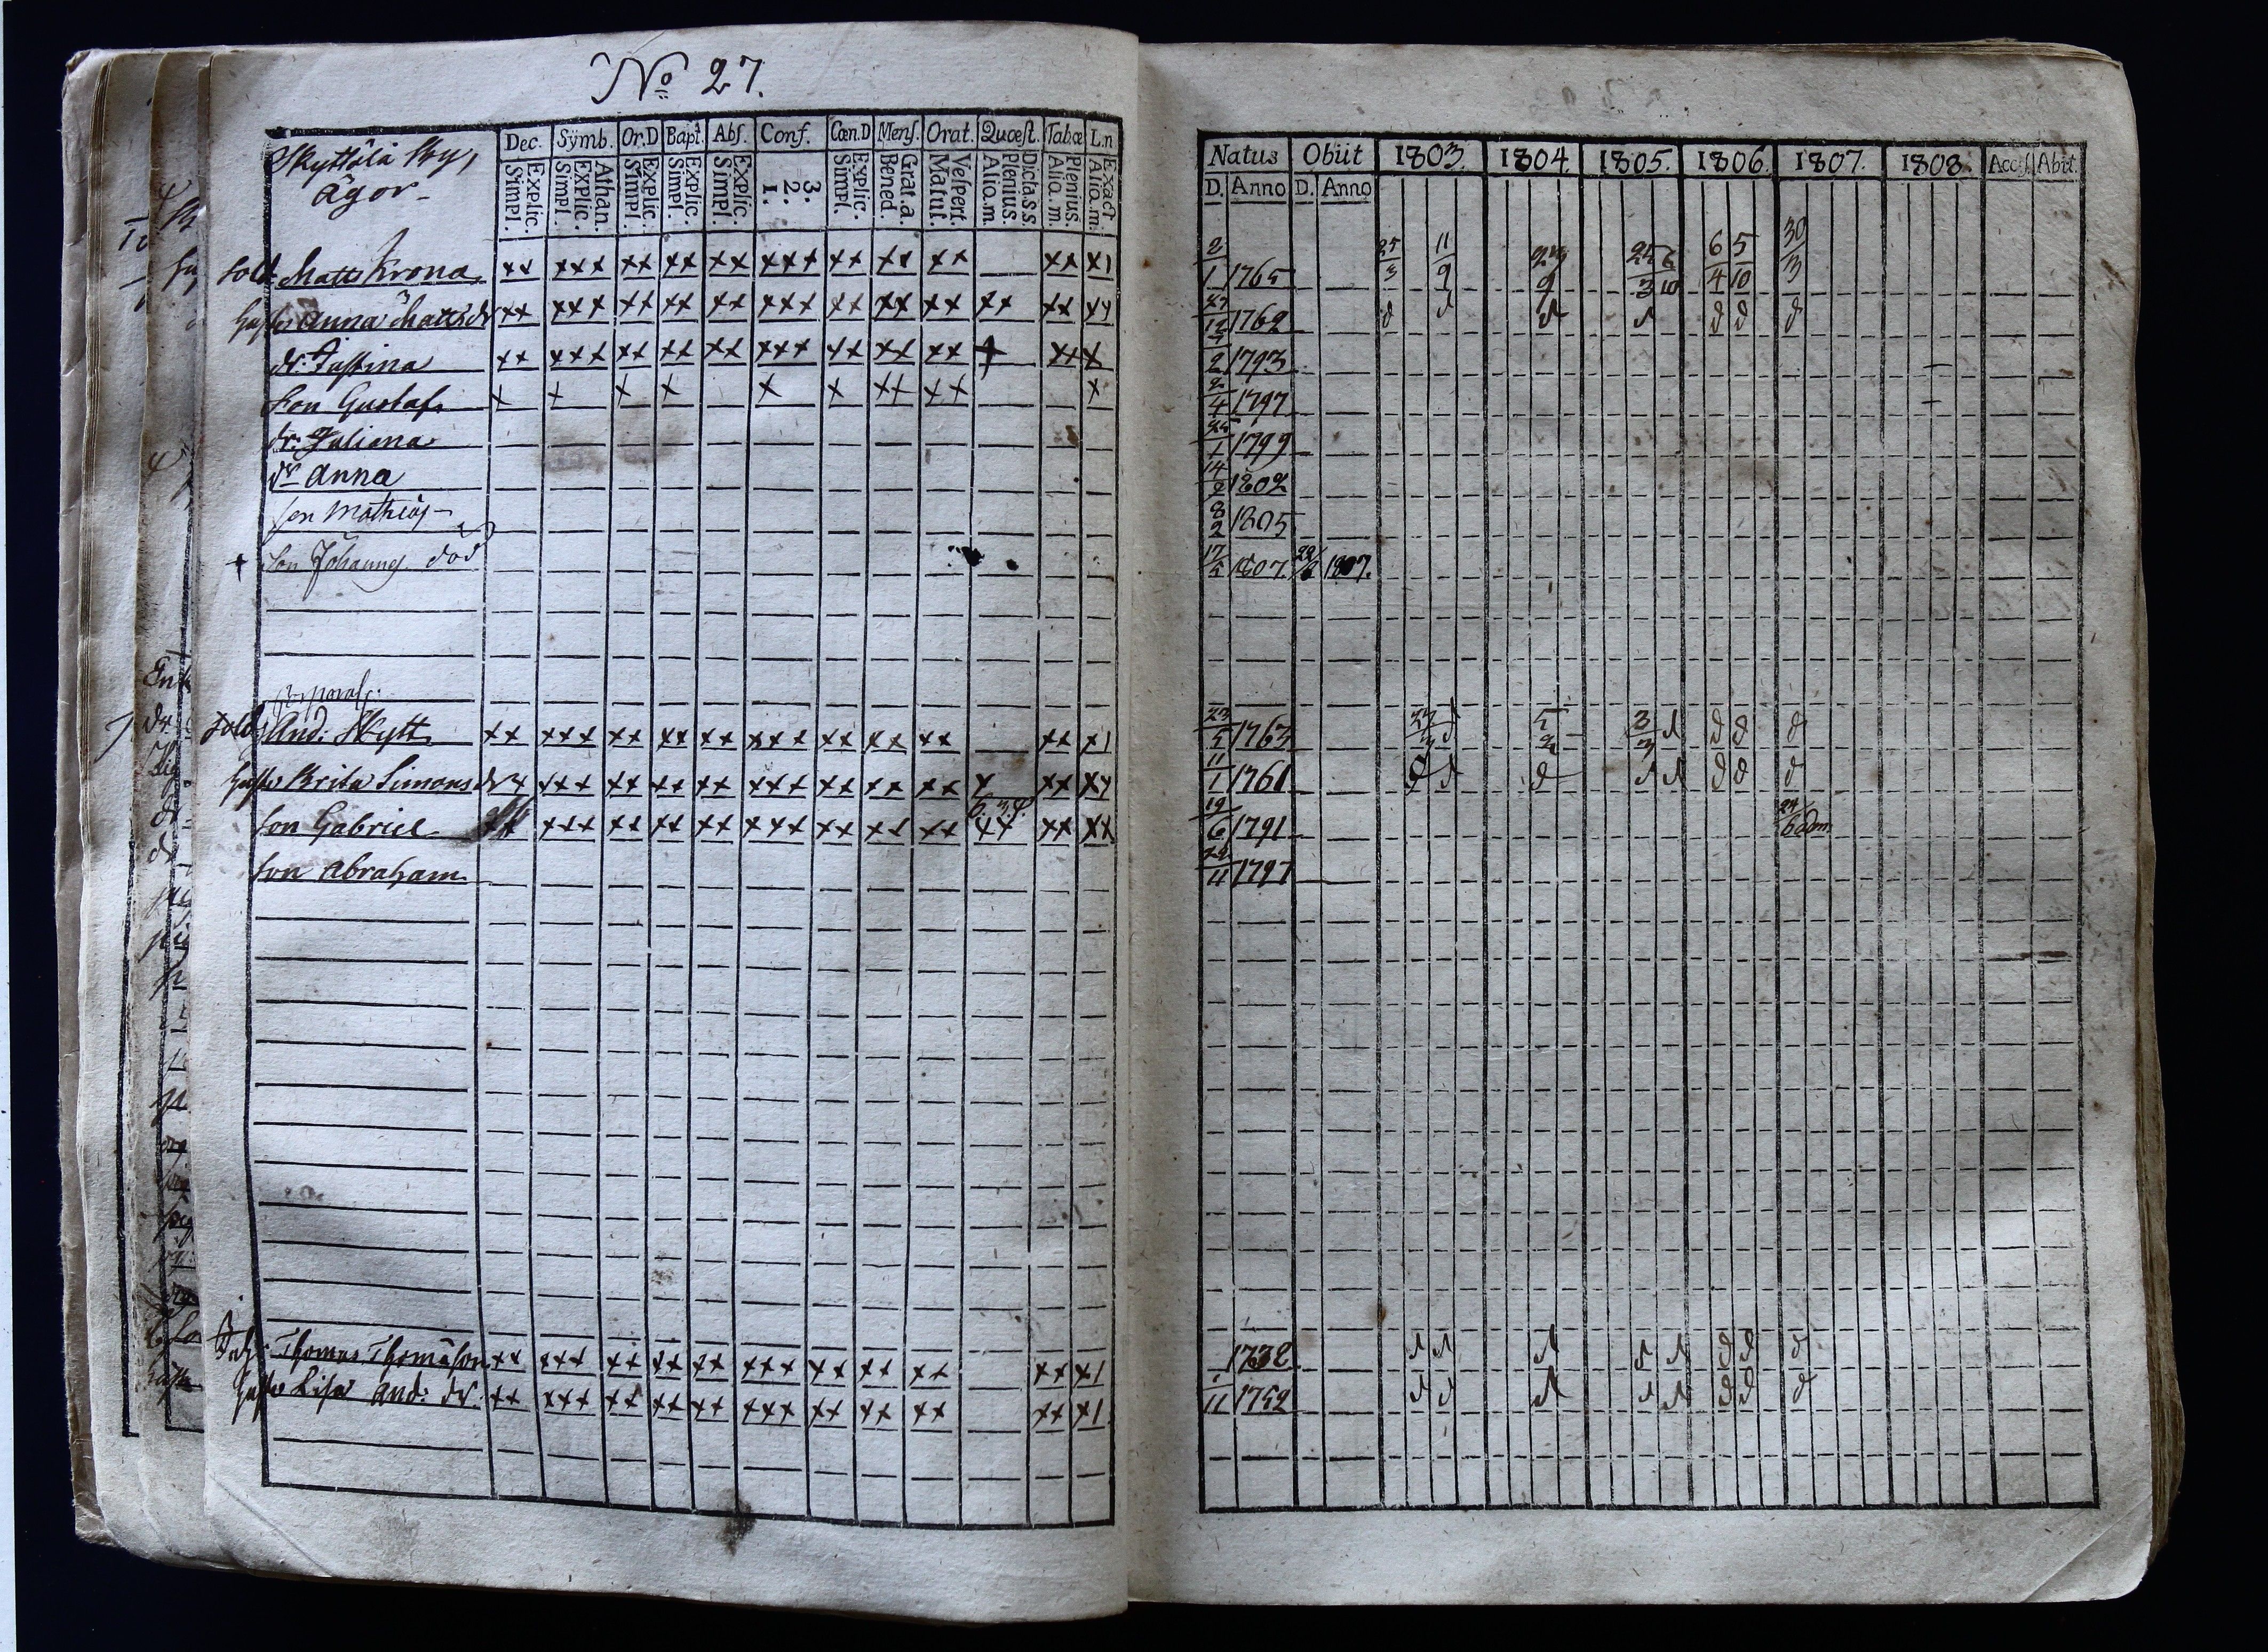 No 27.
Dec. Symb. Or.D Bapt. Abs. Conf. Cœn.D Mens. Orat. Quæst. Tabæ L.n
Explic. Simpl. Athan. Explic. Simpl. Explic. Simpl. Explic. Simpl. Explic. Simpl. 3. 2. 1. Explic. Simpl. Grat.a. Bened. Vespert. Matut. Dicta.s.s. Plenius. Aliq.m. Plenius. Aliq.m. Exact Aliq.m.
Skyttälä by,
ägor
Sold: Matts Krona xx xxx xx xx xx xxx xx xx xx xx x1
Hust. Anna Matts dr xx xxx xx xx xx xxx xx xx xx xx xx xx
dr: Justina xx xxx xx xx xx xxx xx xx xx + xx x
Son Gustaf x x x x x x xx xx x
dr: Juliana
dr Anna
son Mathias
+ Son Johannes död
Sold And: Skytt xx xxx xx xx xx xxx xx xx xx xx x1
Hust. Brita Simons dr x xxx xx xx xx xxx xx xx xx x xx xx
Son Gabriel xx xxx xx xx xx xxx xx xx xx xx xx xx
Son Abraham
Thomas Thomasson xx xxx xx xx xx xxx xx xx xx xx x1
Hust. Lisa And: dr. xx xxx xx xx xx xxx xx xx xx xx x1
Natus Obiit 1803. 1804. 1805. 1806. 1807. 1808. Access. Abiit.
D. Anno D. Anno
2/1 1765 25/3 11/9 24/9 6/4 5/10 30/3
1762 d d d d d d d
2 1793
2/4 1797
25/1 1799
14/2 1802
8/2 1805
17/5 1807. 1807.
23/5 1763 d 5/2 3/3 d d d d
11/1 1761 d d d d d d d d
19/6 1791
11 1797
1732 d d d d d d d d
11 1752 d d d d d d d d